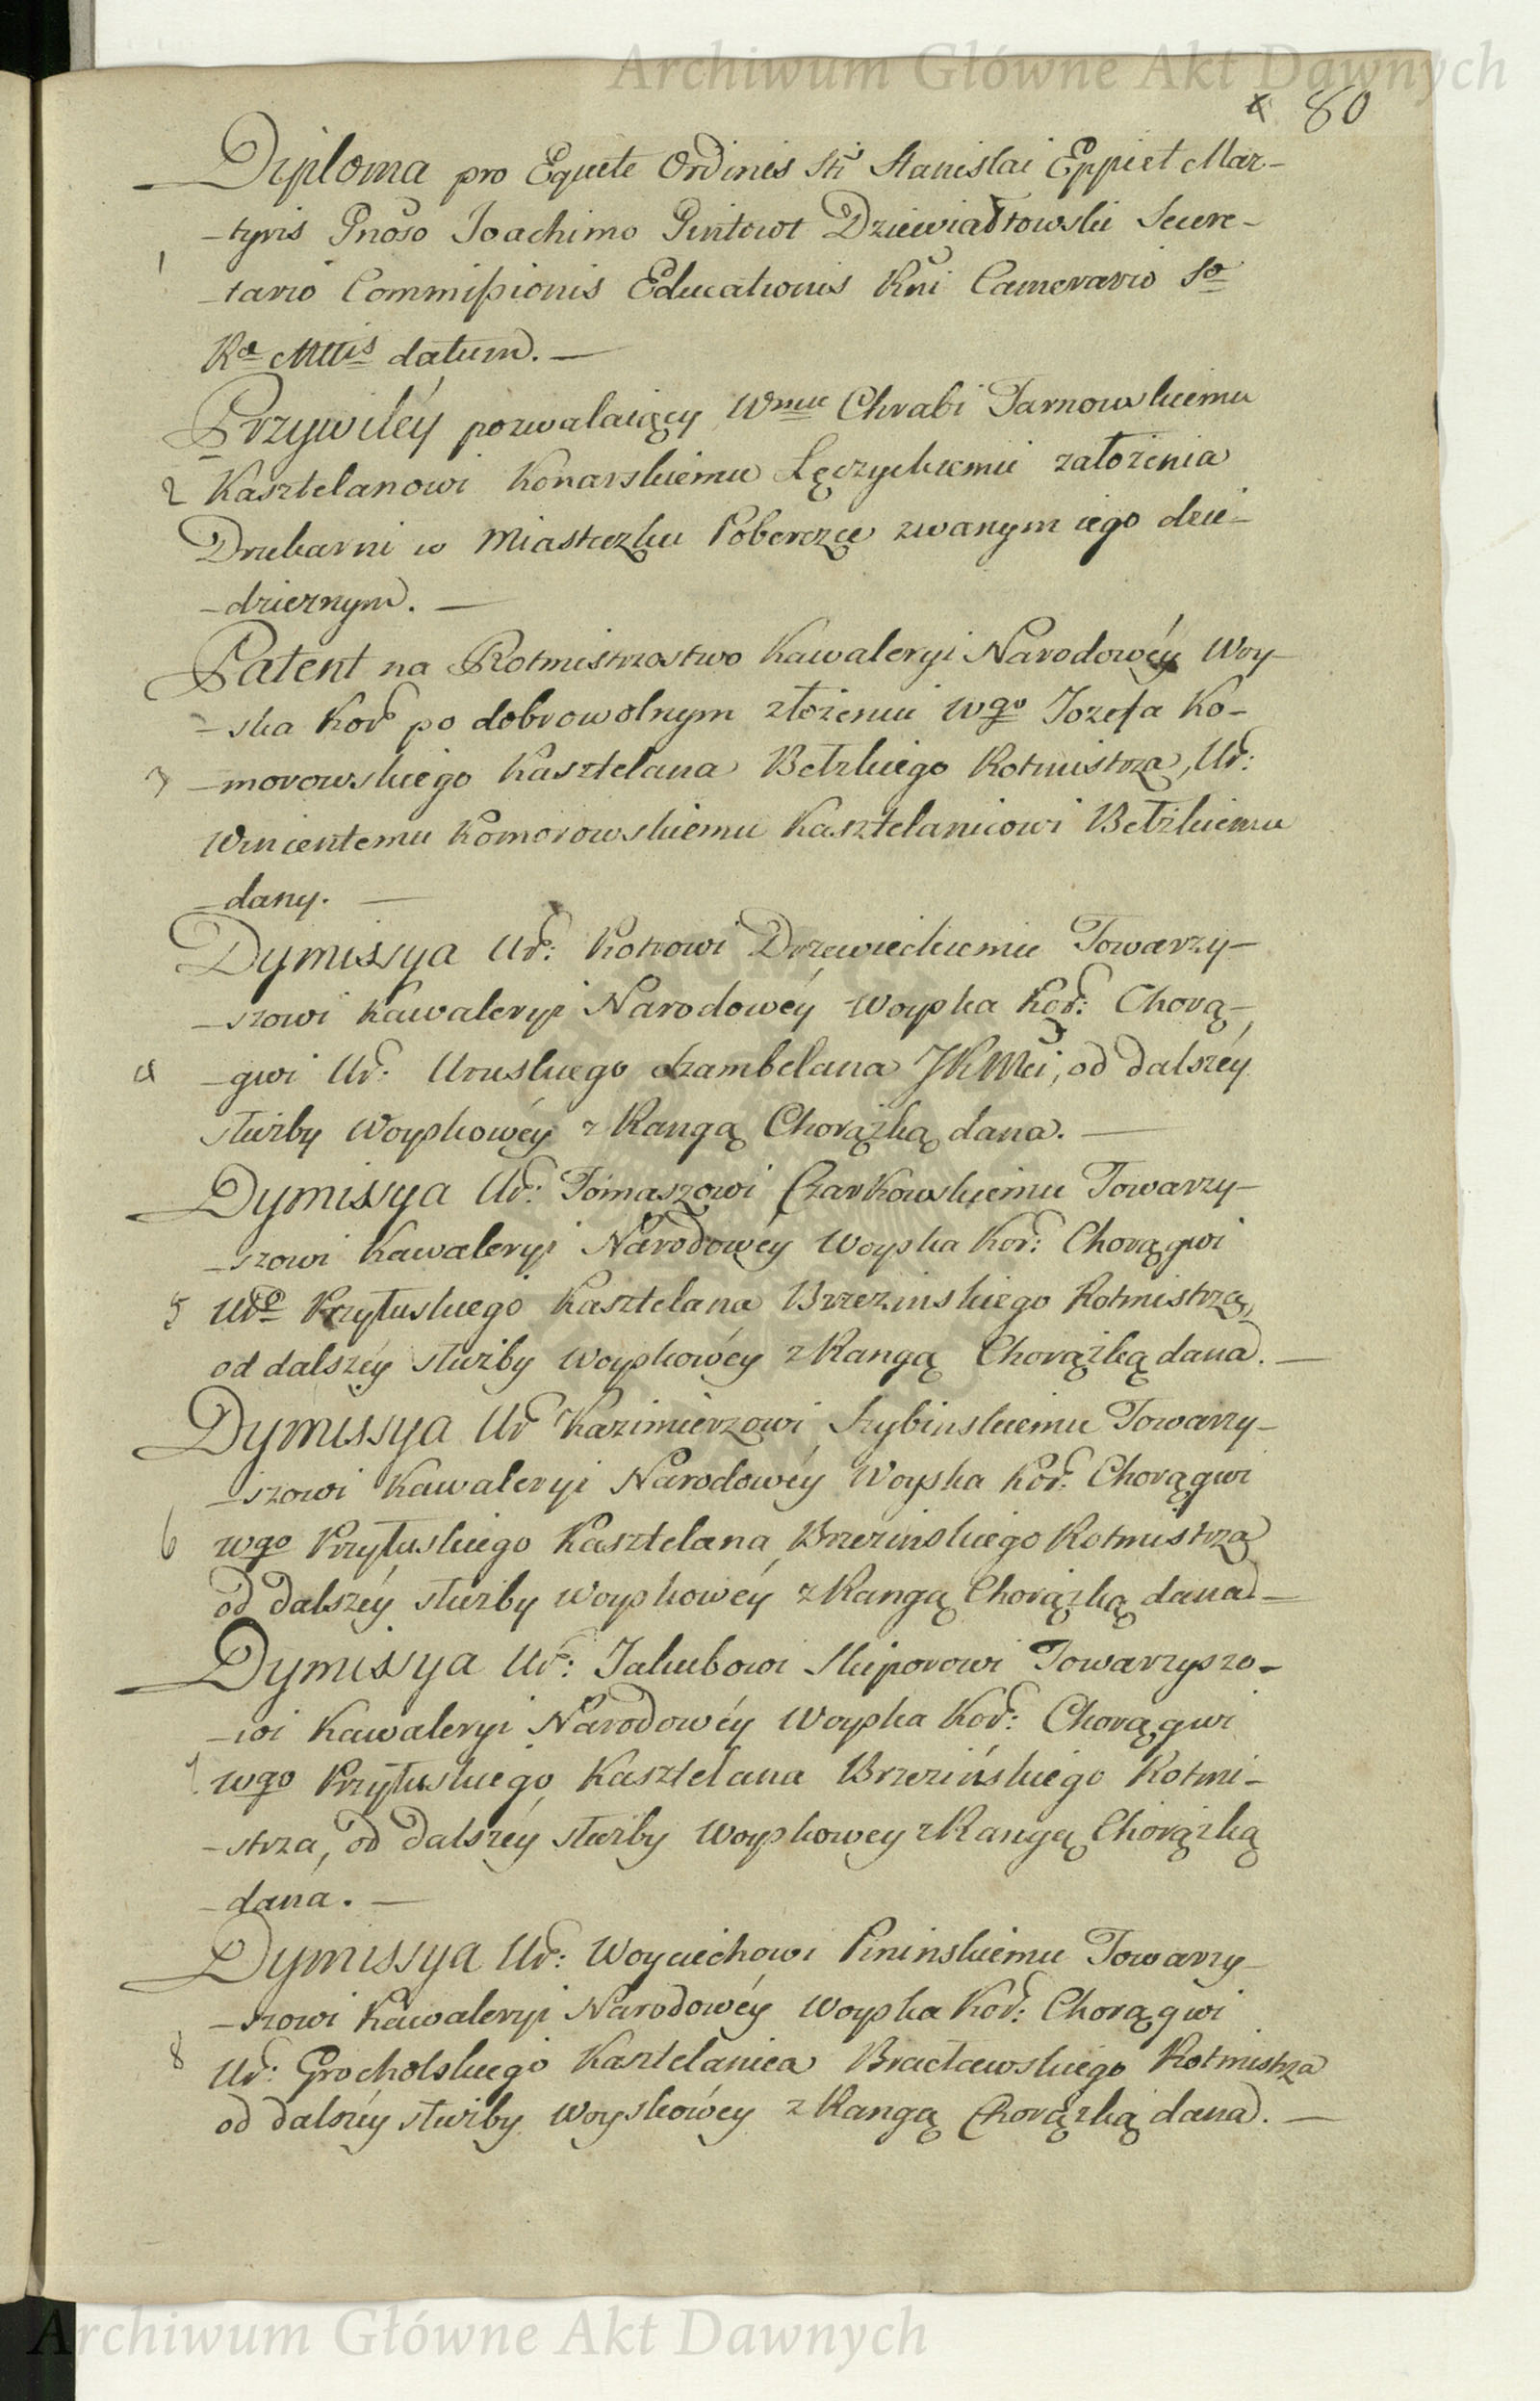 Archiwum Główne Akt Dawnych
80
Diploma pro Equite Ordinis Sti Stanislai Eppi et Mar-
-tyris Gnoso Joachimo Gintowt Dziewiałtowski Secre-
1 -tario Commissionis Educationis Rni Camerario So
Ra Mttis datum. —
Przywiléy pozwalaiący Wmu Chrabi Tarnowskiemu
2 Kasztelanowi Konarskiemu Łęczyckiemu założenia
Drukarni w Miasteczku zwanym iego dzie-
-dzicznym. —
Patent na Rotmistrzostwo Kawaleryi Narodowéy Woy-
-ska Kor po dobrowolnym złożeniu Wgo Jozefa Ko-
3 -morowskiego Kasztelana Bełzkiego Rotmistrza, Ur:
Wincentemu Komorowskiemu Kasztelanicowi Bełzkiemu
-dany. —
Dymissya Ur: Drzewieckiemu Towarzy-
-szowi Kawaleryi Narodowéy Woyska Kor: Chorą-
4 -gwi Ur: Uruskiego Szambelana JKMci, od dalszéy
służby Woyskowéy z Rangą Chorążką dana. —
Dymissya Ur: Tomaszowi Czarkowskiemu Towarzy-
-szowi Kawaleryi Narodowéy Woyska Kor: Chorągwi
5 Urgo Przyłuskiego Kasztelana Brzezinskiego Rotmistrza,
od dalszéy służby Woyskowéy z Rangą Chorążką dana. —
Dymissya Ur Kazimierzowi Szybinskiemu Towarzy-
-szowi Kawaleryi Narodowéy Woyska Kor: Chorągwi
6 Wgo Przyłuskiego Kasztelana Brzezinskiego Rotmistrza
od dalszéy służby Woyskowéy z Rangą Chorążką dana —
Dymissya Ur: Jakubowi Skiporowi Towarzyszo-
-wi Kawaleryi Narodowéy Woyska Kor: Chorągwi
7 Wgo Przyłuskiego Kasztelana Brzezińskiego Rotmi-
-strza, od dalszéy służby Woyskowey z Rangą Chorążką
-dana. —
Dymissya Ur: Woyciechowi Pininskiemu Towarzy-
-szowi Kawaleryi Narodowéy Woyska Kor: Chorągwi
8 Ur: Grocholskiego Kasztelanica Bracławskiego Rotmistrza
od dalszéy służby Woyskowéy z Rangą Chorążką dana. —
Archiwum Główne Akt Dawnych